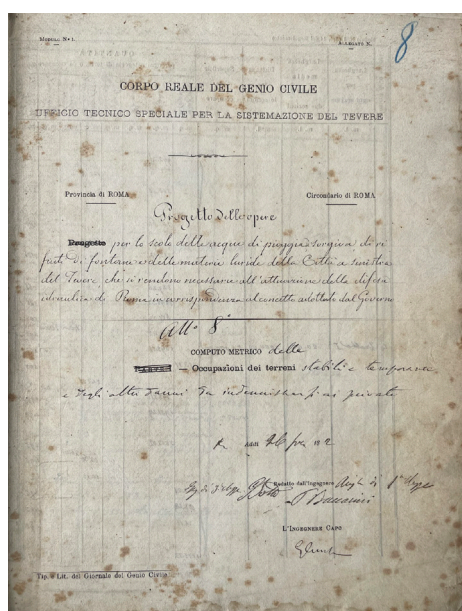 MODULO N.° 1.
ALLEGATO N. 8
CORPO REALE DEL GENIO CIVILE
UFFICIO TECNICO SPECIALE PER LA SISTEMAZIONE DEL TEVERE
Provincia di ROMA
Circondario di ROMA
Progetto delle opere
Progetto per lo scolo delle acque di pioggia sorgiva di ri
fiuti di fontane e delle materie luride della Città a sinistra
del Tevere che si rendono necessarie all'attuazione della difesa
idraulica di Roma in corrispondenza al concetto adottato dal Governo
All.° 8°
COMPUTO METRICO delle
— Occupazioni dei terreni stabili e temporanee
e degli altri danni da indennizzarsi ai privati
Redatto dall'Ingegnere
L'INGEGNERE CAPO
Tip. e Lit. del Giornale del Genio Civile